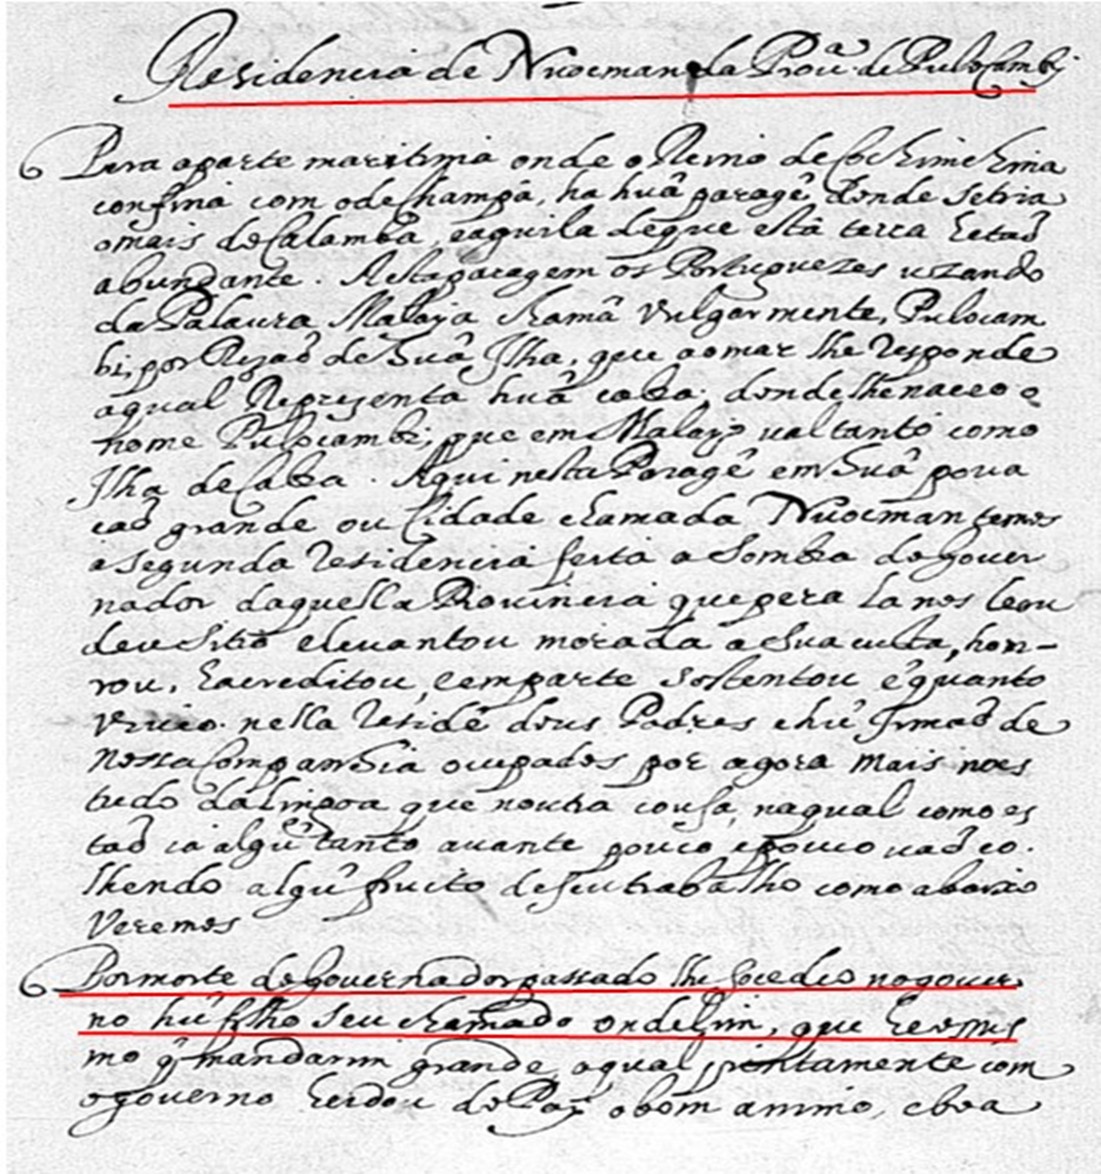 Residencia de Nuocman da Prou.ª de Pulocambi
Pera a parte maritima onde o Reino de Cochimchina
confina com o de Champá, ha huã paragẽ donde se tria
o mais do Calamba, e aquila de que esta terra he taõ
abundante. A esta paragem os Portuguezes uzando
da Palaura Malaya chamã vulgarmente, Pulocam
bi, por Rezaõ de huã Ilha, que ao mar lhe responde
a qual Reprezenta huã cabra, donde lhe naceo o
nome Pulocambi, que em Malayo ual tanto como
Ilha de Cabra. Aqui nesta Paragẽ em huã poua
caõ grande ou Cidade chamada Nuocman temos
a segunda residencia feita a sombra do gouer
nador daquella Prouincia que pera la nos leuou
deu sitio e leuantou morada a sua custa, hon-
rou, e acreditou, e em parte sostentou ẽ quanto
viueo. nella residẽ dous Padres e hũ Irmaõ de
nossa Companhia ocupados por agora mais no es
tudo da lingoa que noutra cousa, na qual como es
taõ ia algũ tanto auante pouco e pouco uaõ co.
lhendo algũ fruito de seu trabalho como abaixo
veremos
Por morte do gouernador passado lhe socedeo no gouer
no hũ filho seu chamado ondelim, que he o mes
mo q̃ mandarim grande, o qual iuntamente com
o gouerno herdou do Pay o bom animo, e boa